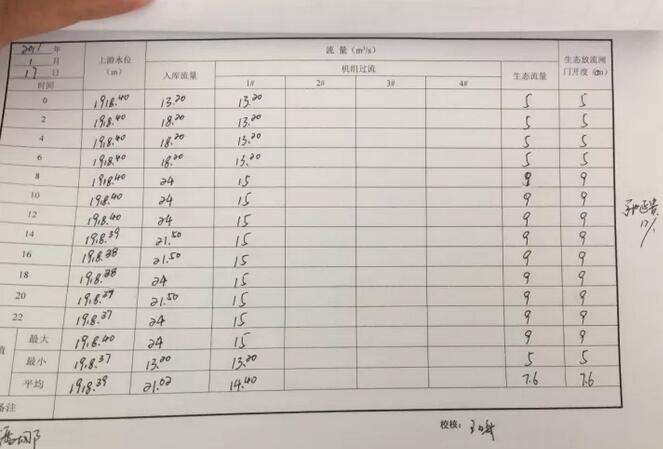 2021年
1月
17日
时间
上游水位
(m)
流 量 (m³/s)
入库流量
机组过流
1# 2# 3# 4#
生态流量
生态放流闸
门开度 (cm)
0 1918.40 13.20 13.20 5 5
2 1918.40 18.20 13.20 5 5
4 1918.40 18.20 13.20 5 5
6 1918.40 18.20 13.20 5 5
8 1918.40 24 15 9 9
10 1918.40 24 15 9 9
12 1918.40 24 15 9 9
14 1918.39 21.50 15 9 9
16 1918.38 21.50 15 9 9
18 1918.38 24 15 9 9
20 1918.37 21.50 15 9 9
22 1918.37 24 15 9 9
值
最大 1918.40 24 15 9 9
最小 1918.37 13.20 13.20 5 5
平均 1918.39 21.02 14.40 7.6 7.6
备注
校核：